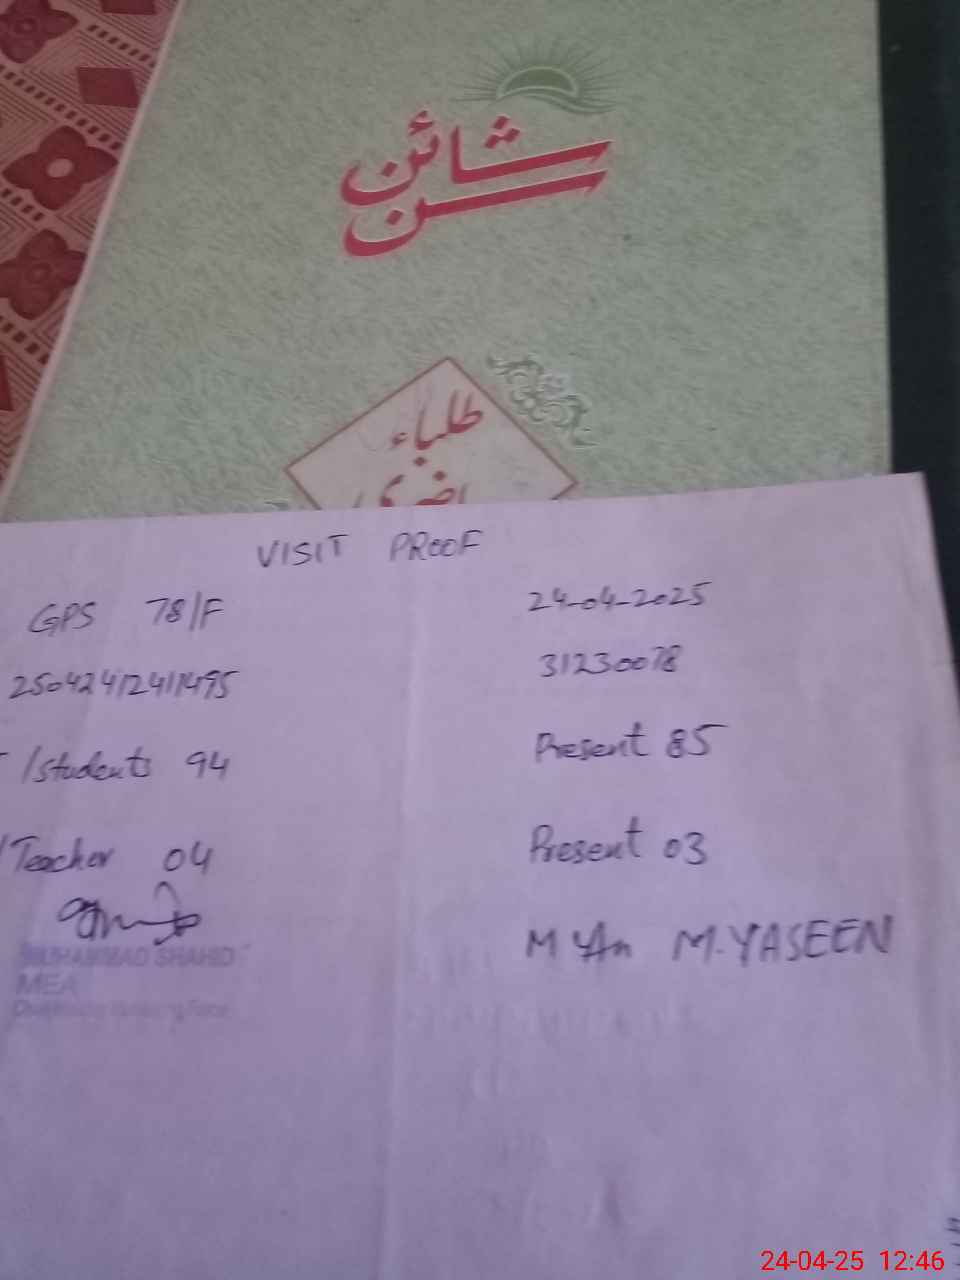 شائن
سن
طلباء
VISIT PROOF
GPS 78/F 24-04-2025
25042412411495 31230078
/Students 94 Present 85
/Teacher 04 Present 03
M. YASEEN
MUHAMMAD SHAHID
MEA
24-04-25 12:46